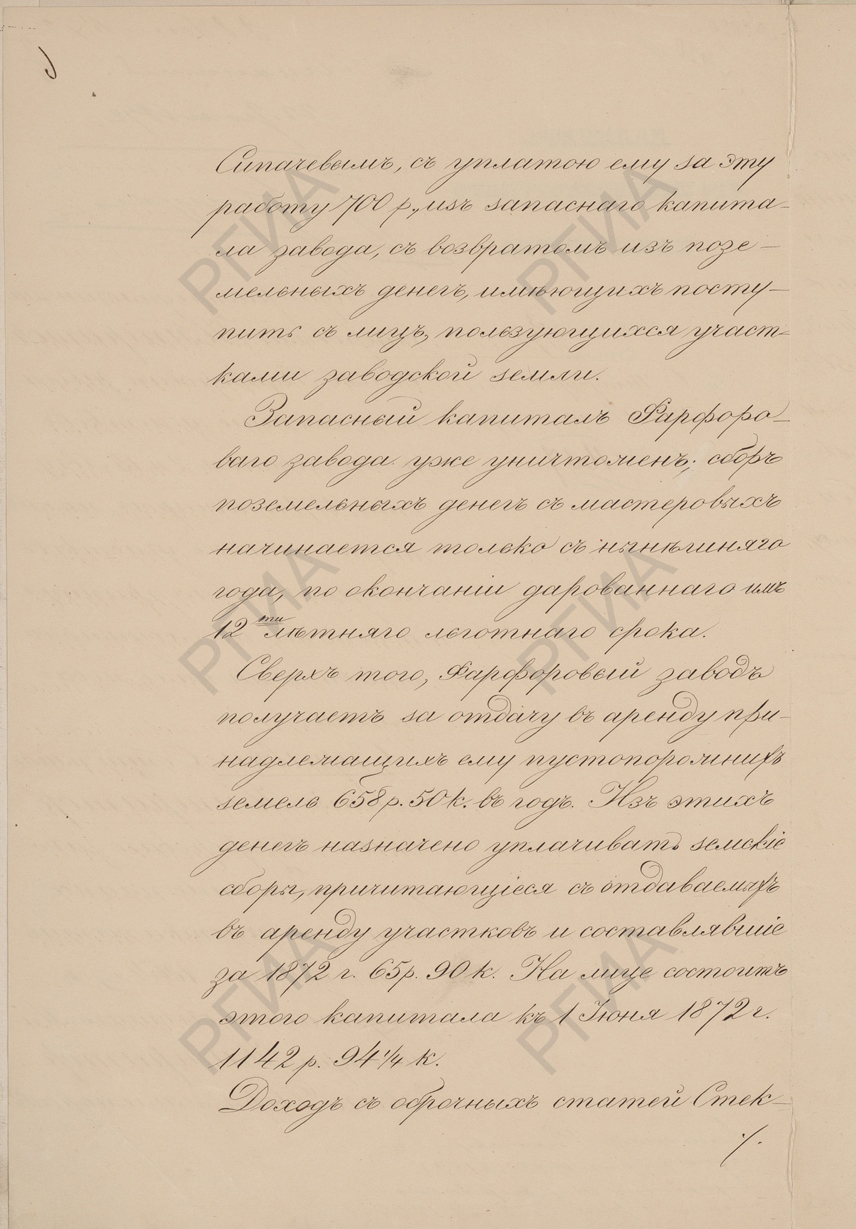 Сипачевымъ, съ уплатою ему за эту
работу 700 р., изъ запаснаго капита-
ла завода, съ возвратомъ изъ позе-
мельныхъ денегъ, имѣющихъ посту-
пить съ лицъ, пользующихся участ-
ками заводской земли.
Запасный капиталъ Фарфоро-
ваго завода уже уничтоженъ; сборъ
поземельныхъ денегъ съ мастеровыхъ
начинается только съ нынѣшняго
года, по окончаніи дарованнаго имъ
12ти лѣтняго льготнаго срока.
Сверхъ того, Фарфоровый заводъ
получаетъ за отдачу въ аренду при-
надлежащихъ ему пустопорожнихъ
земель 658 р. 50 к. въ годъ. Изъ этихъ
денегъ назначено уплачивать земскіе
сборы, причитающіеся съ отдаваемыхъ
въ аренду участковъ и составлявшіе
за 1872 г. 65 р. 90 к. На лице состоитъ
этого капитала къ 1 Іюня 1872 г.
1142 р. 94 1/4 к.
Доходъ съ оброчныхъ статей Стек-
./.
РГИА
РГИА
РГИА
РГИА
РГИА
РГИА